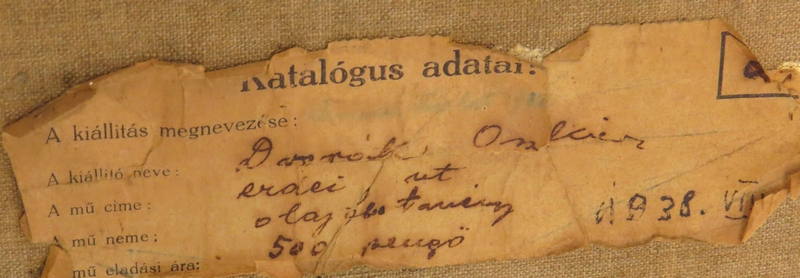 Katalógus adatai:
A kiállitás megnevezése:
A kiállitó neve: Dvorák Oszkár
A mű cime: erdei út
A mű neme: olajfestmény
mű eladási ára: 500 pengő
1938. VIII